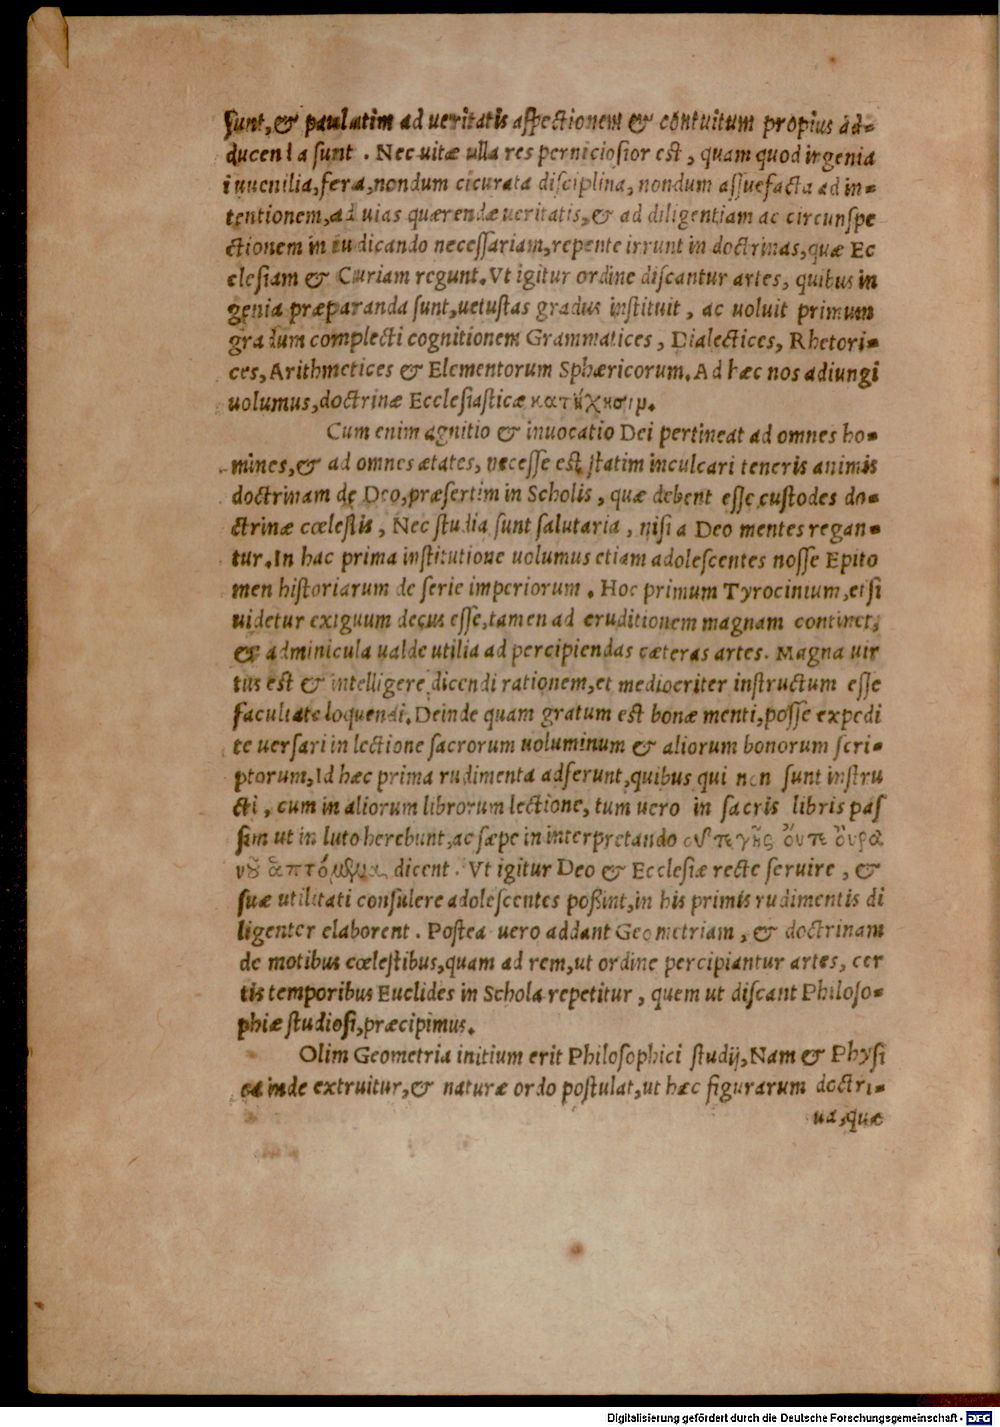 sunt, & paulatim ad ueritatis aspectionem & contuitum propius ad=
ducenda sunt . Nec uitæ ulla res perniciosior est, quam quod ingenia
iuuenilia, fera, nondum cicurata disciplina, nondum assuefacta ad in=
tentionem, ad uias quærendæ ueritatis, & ad diligentiam ac circunspe
ctionem in iudicando necessariam, repente irrunt in doctrinas, quæ Ec
clesiam & Curiam regunt. Vt igitur ordine discantur artes, quibus in
genia præparanda sunt, uetustas gradus instituit, ac uoluit primum
gradum complecti cognitionem Grammatices, Dialectices, Rhetori=
ces, Arithmetices & Elementorum Sphæricorum. Ad hæc nos adiungi
uolumus, doctrinæ Ecclesiasticæ κατήχησιμ.
Cum enim agnitio & inuocatio Dei pertineat ad omnes ho=
mines, & ad omnes ætates, necesse est statim inculcari teneris animis
doctrinam de Deo, præsertim in Scholis, quæ debent esse custodes do=
ctrinæ cœlestis, Nec studia sunt salutaria, nisi a Deo mentes regan=
tur. In hac prima institutione uolumus etiam adolescentes nosse Epito
men historiarum de serie imperiorum . Hoc primum Tyrocinium, etsi
uidetur exiguum decus esse, tamen ad eruditionem magnam continet,
& adminicula ualde utilia ad percipiendas cæteras artes. Magna uir
tus est & intelligere dicendi rationem, et mediocriter instructum esse
facultate loquendi. Deinde quam gratum est bonæ menti, posse expedi
te uersari in lectione sacrorum uoluminum & aliorum bonorum scri=
ptorum, Id hæc prima rudimenta adferunt, quibus qui non sunt instru
cti, cum in aliorum librorum lectione, tum uero in sacris libris pas
sim ut in luto herebunt, ac sæpe in interpretando οὔτε γῆς ὄυτε ὄυρα
νοῦ ἁπτόμενα, dicent. Vt igitur Deo & Ecclesiæ recte seruire, &
suæ utilitati consulere adolescentes possint, in his primis rudimentis di
ligenter elaborent. Postea uero addant Geometriam, & doctrinam
de motibus cœlestibus, quam ad rem, ut ordine percipiantur artes, cer
tis temporibus Euclides in Schola repetitur, quem ut discant Philoso=
phiæ studiosi, præcipimus.
Olim Geometria initium erit Philosophici studij, Nam & Physi
ca inde extruitur, & naturæ ordo postulat, ut hæc figurarum doctri=
na, quæ
Digitalisierung gefördert durch die Deutsche Forschungsgemeinschaft - DFG